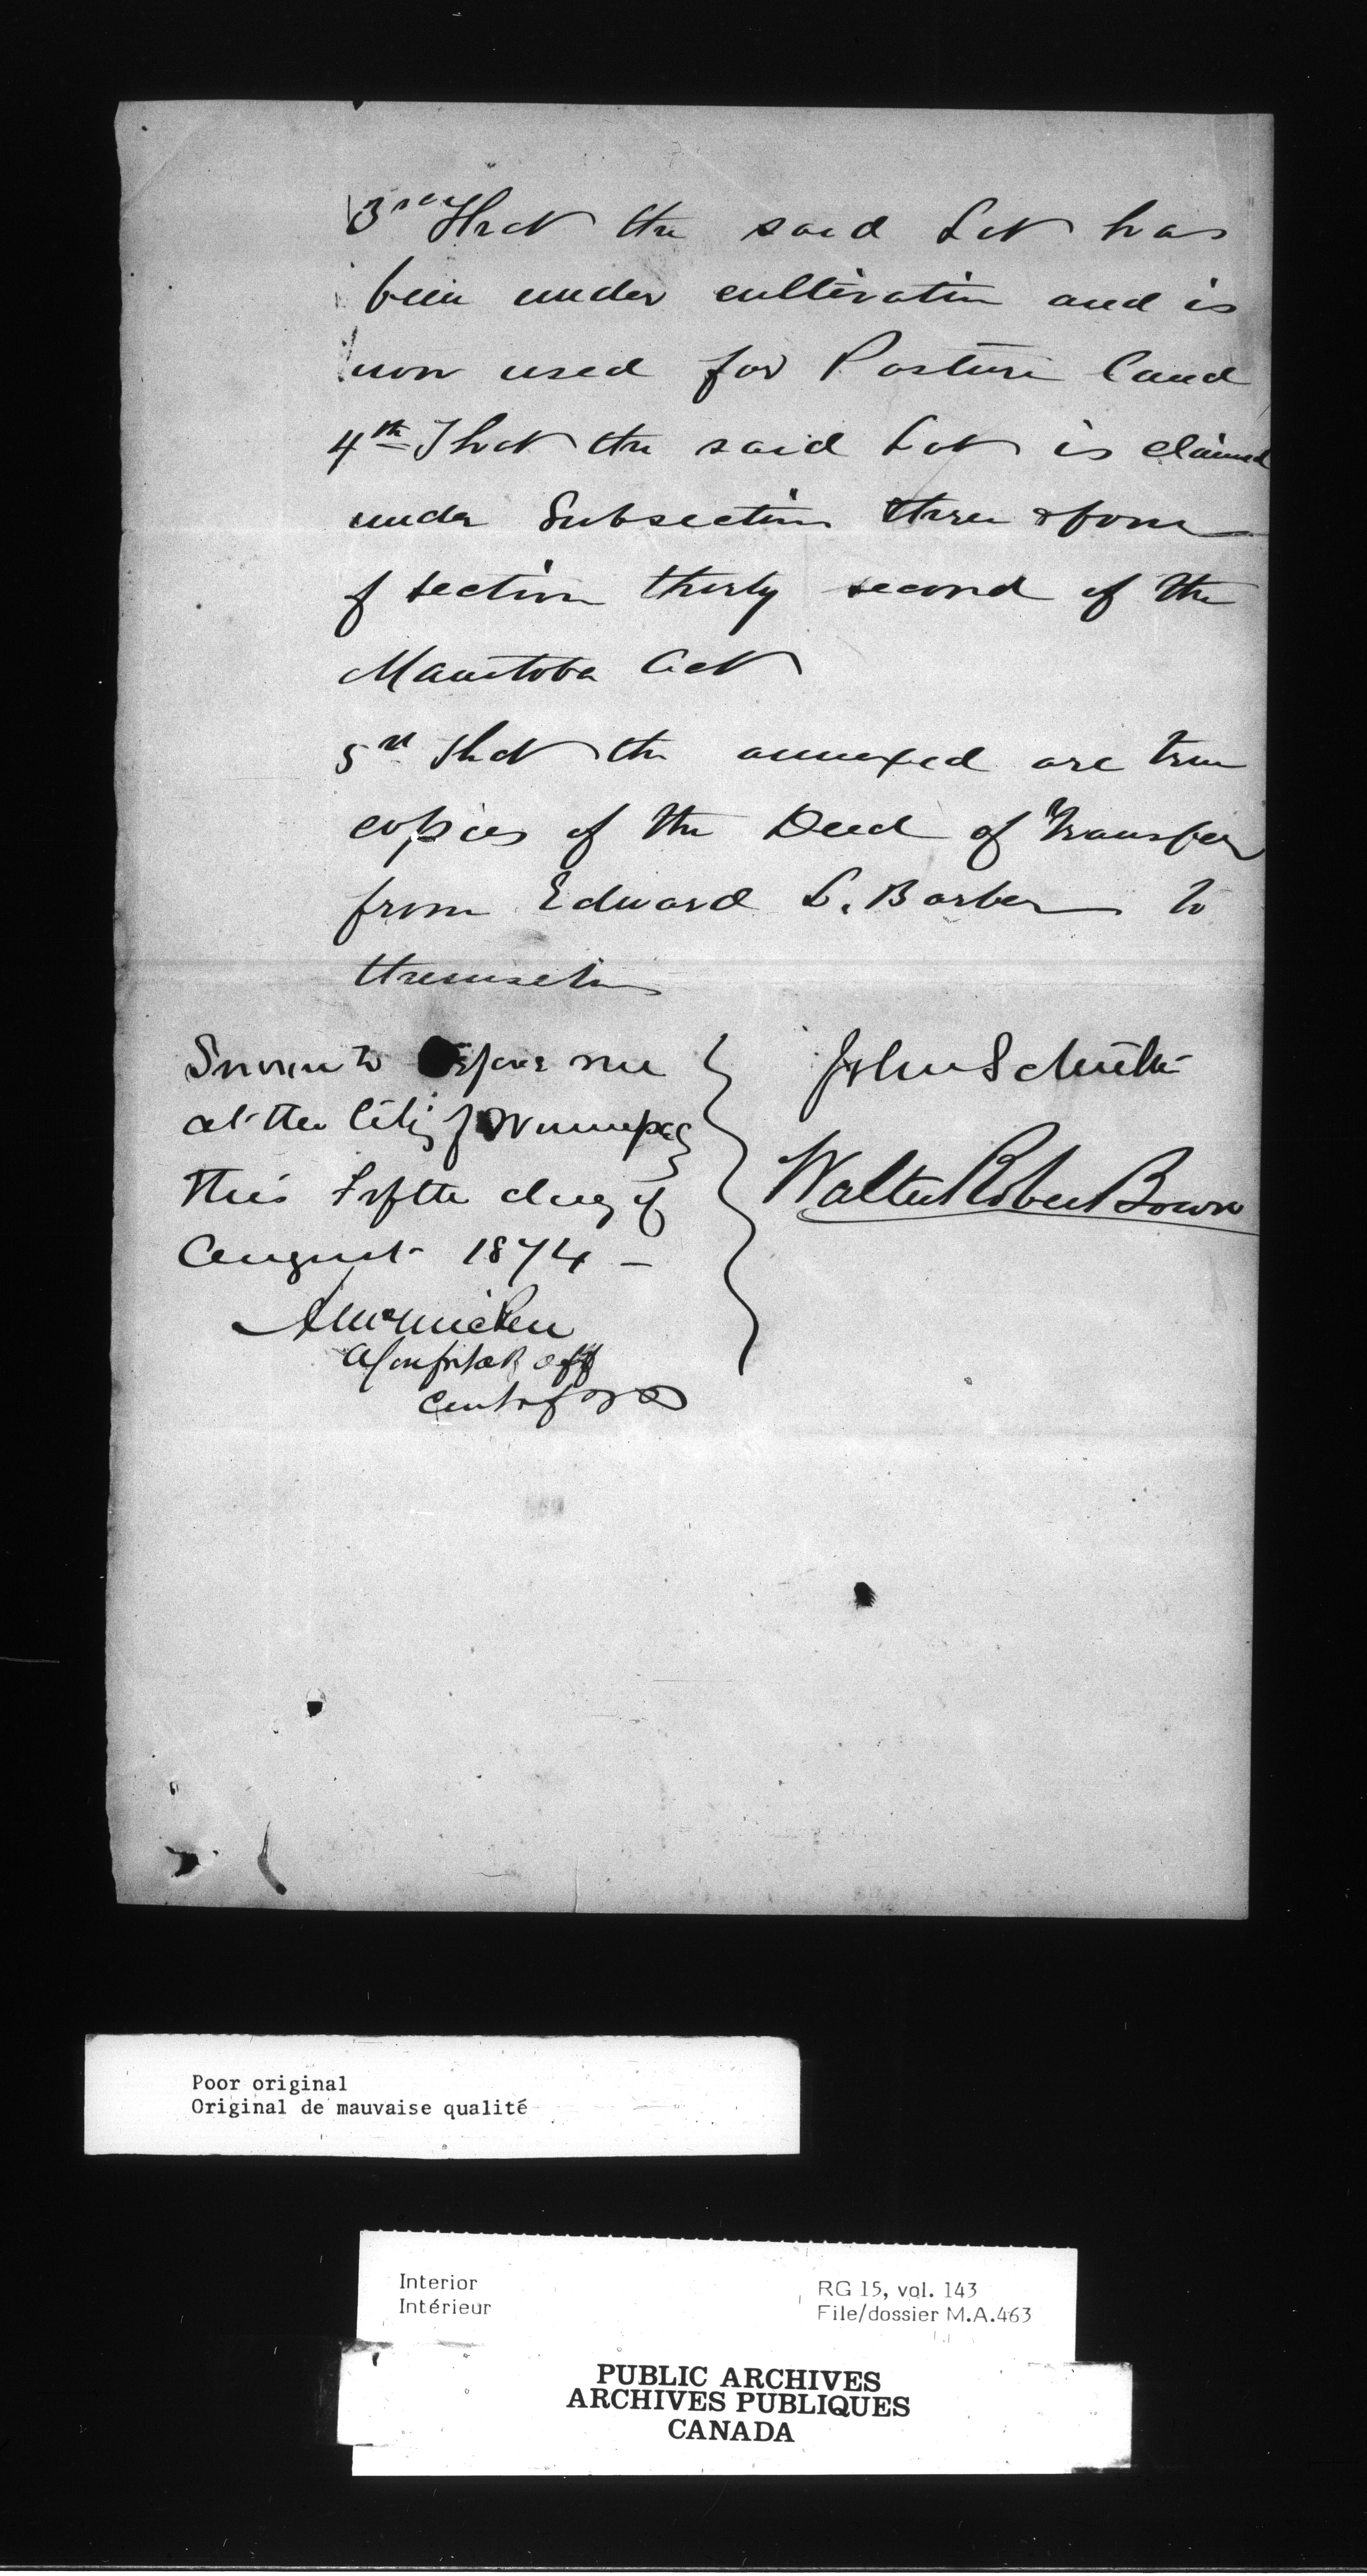 3rd That the said Lot has
been under cultivation and is
now used for Pasture land
4th That the said Lot is claimed
under Subsection three & four
of section thirty second of the
Manitoba Act
5th That the annexed are true
copies of the Deed of Transfer
from Edward L. Barber to
themselves
Sworn to before me
at the City of Winnipeg
this Fifth day of
August 1874 –
John Schultz
Walter Robert Bown
A McMicken
Poor original
Original de mauvaise qualité
Interior
Intérieur
RG 15, vol. 143
File/dossier M.A.463
PUBLIC ARCHIVES
ARCHIVES PUBLIQUES
CANADA